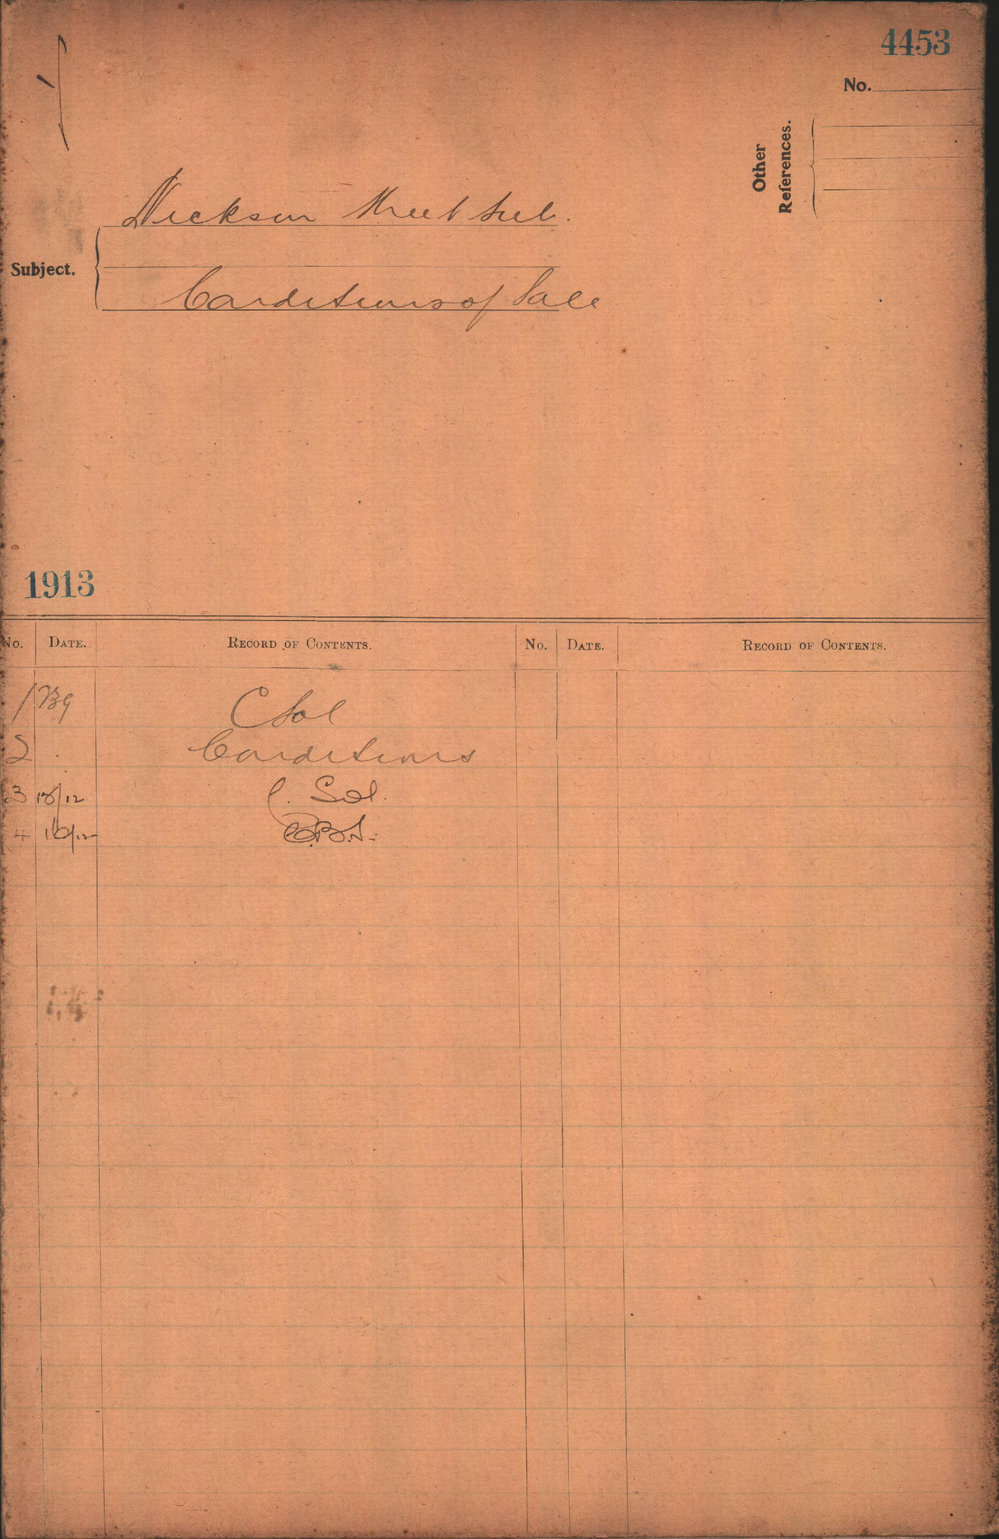 4453
No.
Other References.
Dickson Street Sub.
Subject.
Conditions of Sale
1913
No. DATE. RECORD OF CONTENTS. No. DATE. RECORD OF CONTENTS.
1 C Sol
2 Conditions
3 15/12 C. Sol.
4 16/12